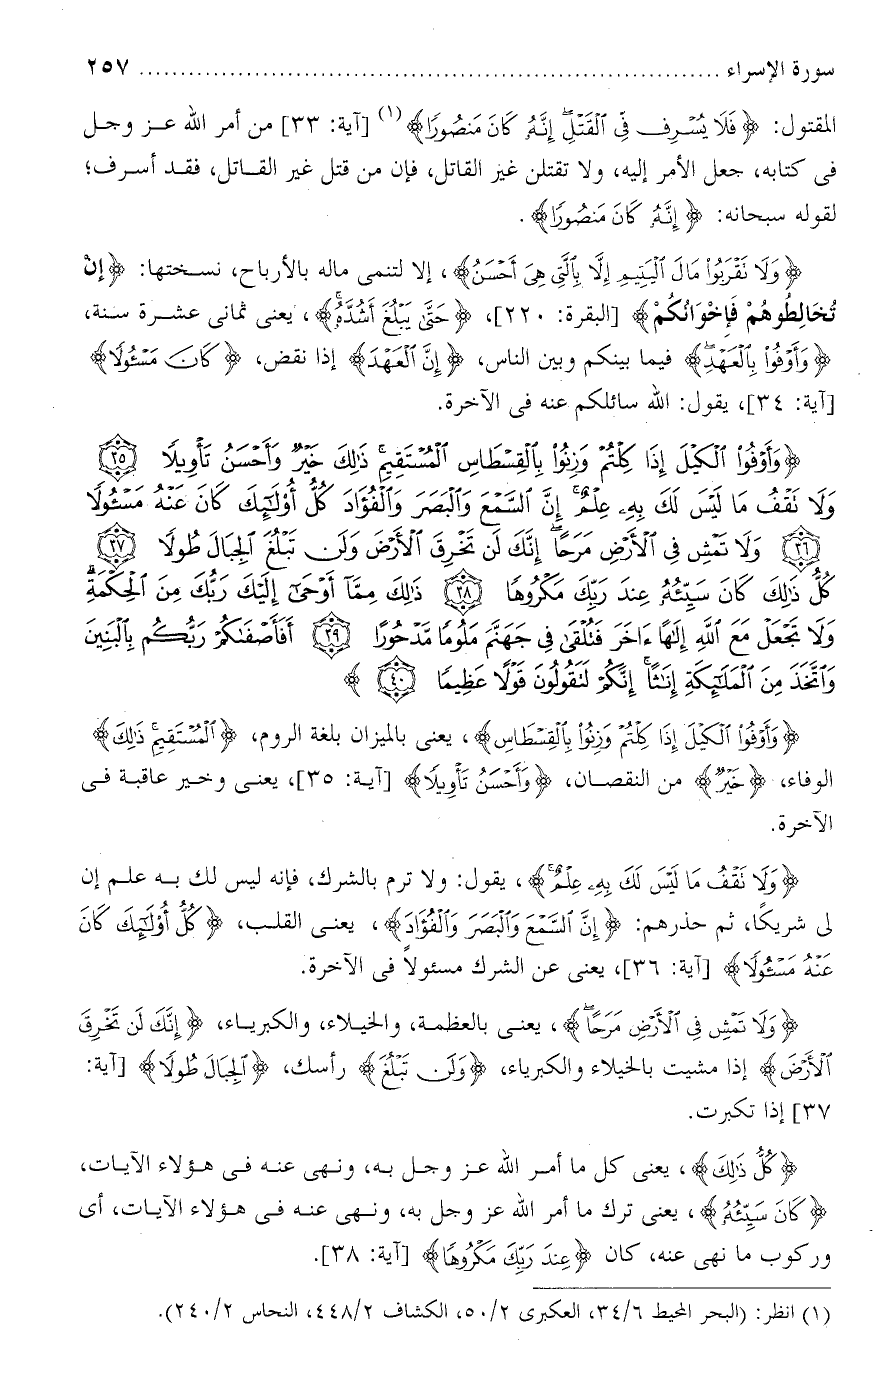 سورة الإسراء ........................................................................ ٢٥٧
المقتول: ﴿فَلَا يُسْرِف فِّي الْقَتْلِ ۖ إِنَّهُ كَانَ مَنصُورًا﴾(١) [آية: ٣٣] من أمر الله عز وجل
فى كتابه، جعل الأمر إليه، ولا تقتلن غير القاتل، فإن من قتل غير القاتل، فقد أسرف؛
لقوله سبحانه: ﴿إِنَّهُ كَانَ مَنصُورًا﴾.
﴿وَلَا نَقْرَبُوا۟ مَالَ الْيَتِيمِ إِلَّا بِالَّتِي هِيَ أَحْسَنُ﴾، إلا لتنمى ماله بالأرباح، نسختها: ﴿إِنْ
تُخَالِطُوهُمْ فَإِخْوَانُكُمْ﴾ [البقرة: ٢٢٠]، ﴿حَتَّىٰ يَبْلُغَ أَشُدَّهُ ۚ﴾، يعنى ثمانى عشرة سنة،
﴿وَأَوْفُوا۟ بِالْعَهْدِ ۖ﴾ فيما بينكم وبين الناس، ﴿إِنَّ الْعَهْدَ﴾ إذا نقض، ﴿كَانَ مَسْئُولًا﴾
[آية: ٣٤]، يقول: الله سائلكم عنه فى الآخرة.
﴿وَأَوْفُوا۟ الْكَيْلَ إِذَا كِلْتُمْ وَزِنُوا۟ بِالْقِسْطَاسِ الْمُسْتَقِيمِ ۚ ذَٰلِكَ خَيْرٌ وَأَحْسَنُ تَأْوِيلًا ٣٥
وَلَا نَقْفُ مَا لَيْسَ لَكَ بِهِۦ عِلْمٌ ۚ إِنَّ السَّمْعَ وَالْبَصَرَ وَالْفُؤَادَ كُلُّ أُو۟لَٰٓئِكَ كَانَ عَنْهُ مَسْئُولًا
٣٦ وَلَا تَمْشِ فِي الْأَرْضِ مَرَحًا ۖ إِنَّكَ لَن تَخْرِقَ الْأَرْضَ وَلَن تَبْلُغَ الْجِبَالَ طُولًا ٣٧
كُلُّ ذَٰلِكَ كَانَ سَيِّئُهُ عِندَ رَبِّكَ مَكْرُوهًا ٣٨ ذَٰلِكَ مِمَّآ أَوْحَىٰٓ إِلَيْكَ رَبُّكَ مِنَ الْحِكْمَةِ ۗ
وَلَا تَجْعَلْ مَعَ اللَّهِ إِلَٰهًا ءَاخَرَ فَتُلْقَىٰ فِي جَهَنَّمَ مَلُومًا مَّدْحُورًا ٣٩ أَفَأَصْفَىٰكُمْ رَبُّكُم بِالْبَنِينَ
وَاتَّخَذَ مِنَ الْمَلَٰٓئِكَةِ إِنَٰثًا ۚ إِنَّكُمْ لَتَقُولُونَ قَوْلًا عَظِيمًا ٤٠ ﴾
﴿وَأَوْفُوا۟ الْكَيْلَ إِذَا كِلْتُمْ وَزِنُوا۟ بِالْقِسْطَاسِ﴾، يعنى بالميزان بلغة الروم، ﴿الْمُسْتَقِيمِ ۚ ذَٰلِكَ﴾
الوفاء، ﴿خَيْرٌ﴾ من النقصان، ﴿وَأَحْسَنُ تَأْوِيلًا﴾ [آية: ٣٥]، يعنى وخير عاقبة فى
الآخرة.
﴿وَلَا نَقْفُ مَا لَيْسَ لَكَ بِهِۦ عِلْمٌ ۚ﴾، يقول: ولا ترم بالشرك، فإنه ليس لك به علم إن
لى شريكًا، ثم حذرهم: ﴿إِنَّ السَّمْعَ وَالْبَصَرَ وَالْفُؤَادَ﴾، يعنى القلب، ﴿كُلُّ أُو۟لَٰٓئِكَ كَانَ
عَنْهُ مَسْئُولًا﴾ [آية: ٣٦]، يعنى عن الشرك مسئولاً فى الآخرة.
﴿وَلَا تَمْشِ فِي الْأَرْضِ مَرَحًا ۖ﴾، يعنى بالعظمة، والخيلاء، والكبرياء، ﴿إِنَّكَ لَن تَخْرِقَ
الْأَرْضَ﴾ إذا مشيت بالخيلاء والكبرياء، ﴿وَلَن تَبْلُغَ﴾ رأسك، ﴿الْجِبَالَ طُولًا﴾ [آية:
٣٧] إذا تكبرت.
﴿كُلُّ ذَٰلِكَ﴾، يعنى كل ما أمر الله عز وجل به، ونهى عنه فى هؤلاء الآيات،
﴿كَانَ سَيِّئُهُ﴾، يعنى ترك ما أمر الله عز وجل به، ونهى عنه فى هؤلاء الآيات، أى
وركوب ما نهى عنه، كان ﴿عِندَ رَبِّكَ مَكْرُوهًا﴾ [آية: ٣٨].
(١) انظر: (البحر المحيط ٣٤/٦، العكبرى ٥٠/٢، الكشاف ٤٤٨/٢، النحاس ٢٤٠/٢).